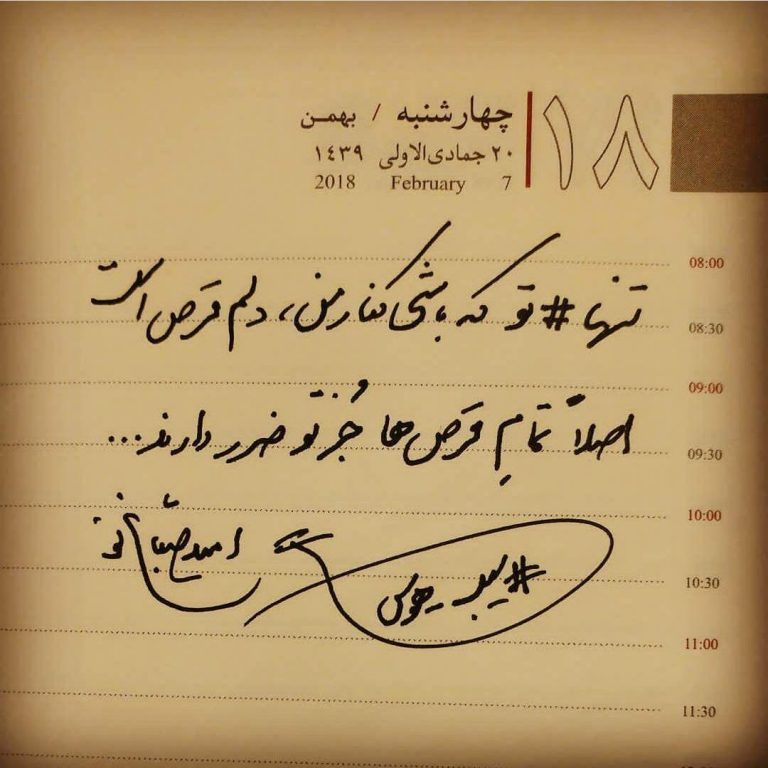 ۱۸ چهارشنبه / بهمن
۲۰ جمادی‌الاولی ۱۴۳۹
7 February 2018
08:00
تنها #تو که باشی کنار من، دلم قرص است
08:30
09:00
اصلاً تمامِ قرص ها جُز تو ضرر دارند...
09:30
10:00
امید صباغ نو
#سید_هوس
10:30
11:00
11:30